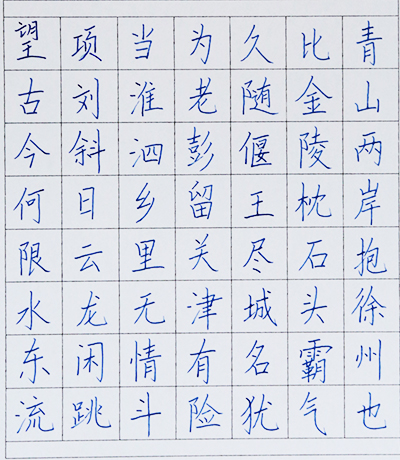 青山两岸抱徐州也
比金陵枕石头霸气
久随偃王尽城名犹
为老彭留关津有险
当淮泗乡里无情斗
项刘斜日云龙闲跳
望古今何限水东流